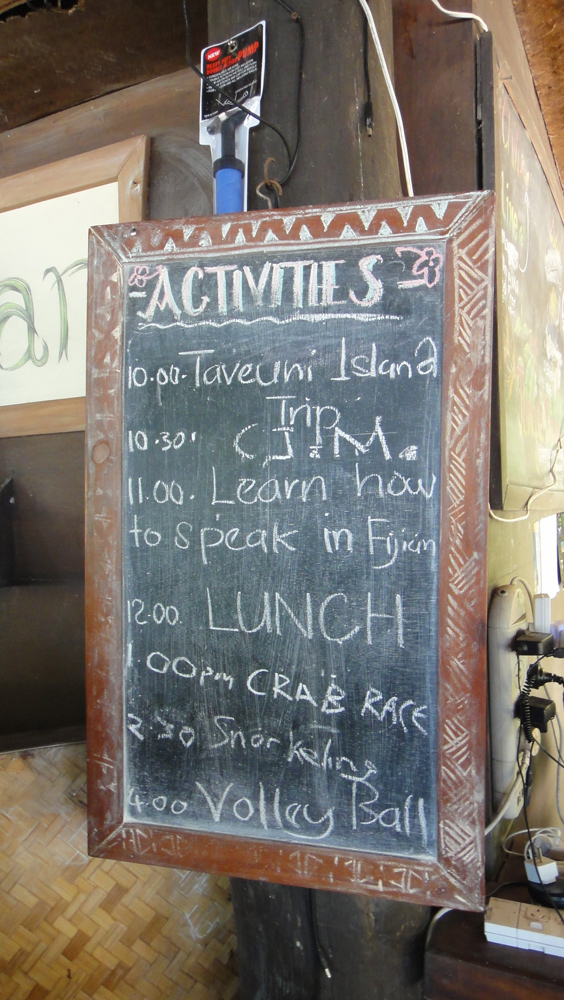 NEW
PUMP
ar
-ACTIVITIES-
10.00. Taveuni Island
Trip
10.30'
11.00. Learn how
to speak in Fijian
12.00. LUNCH
1.00pm CRAB RACE
2.30 Snorkeling
4.00 Volley Ball